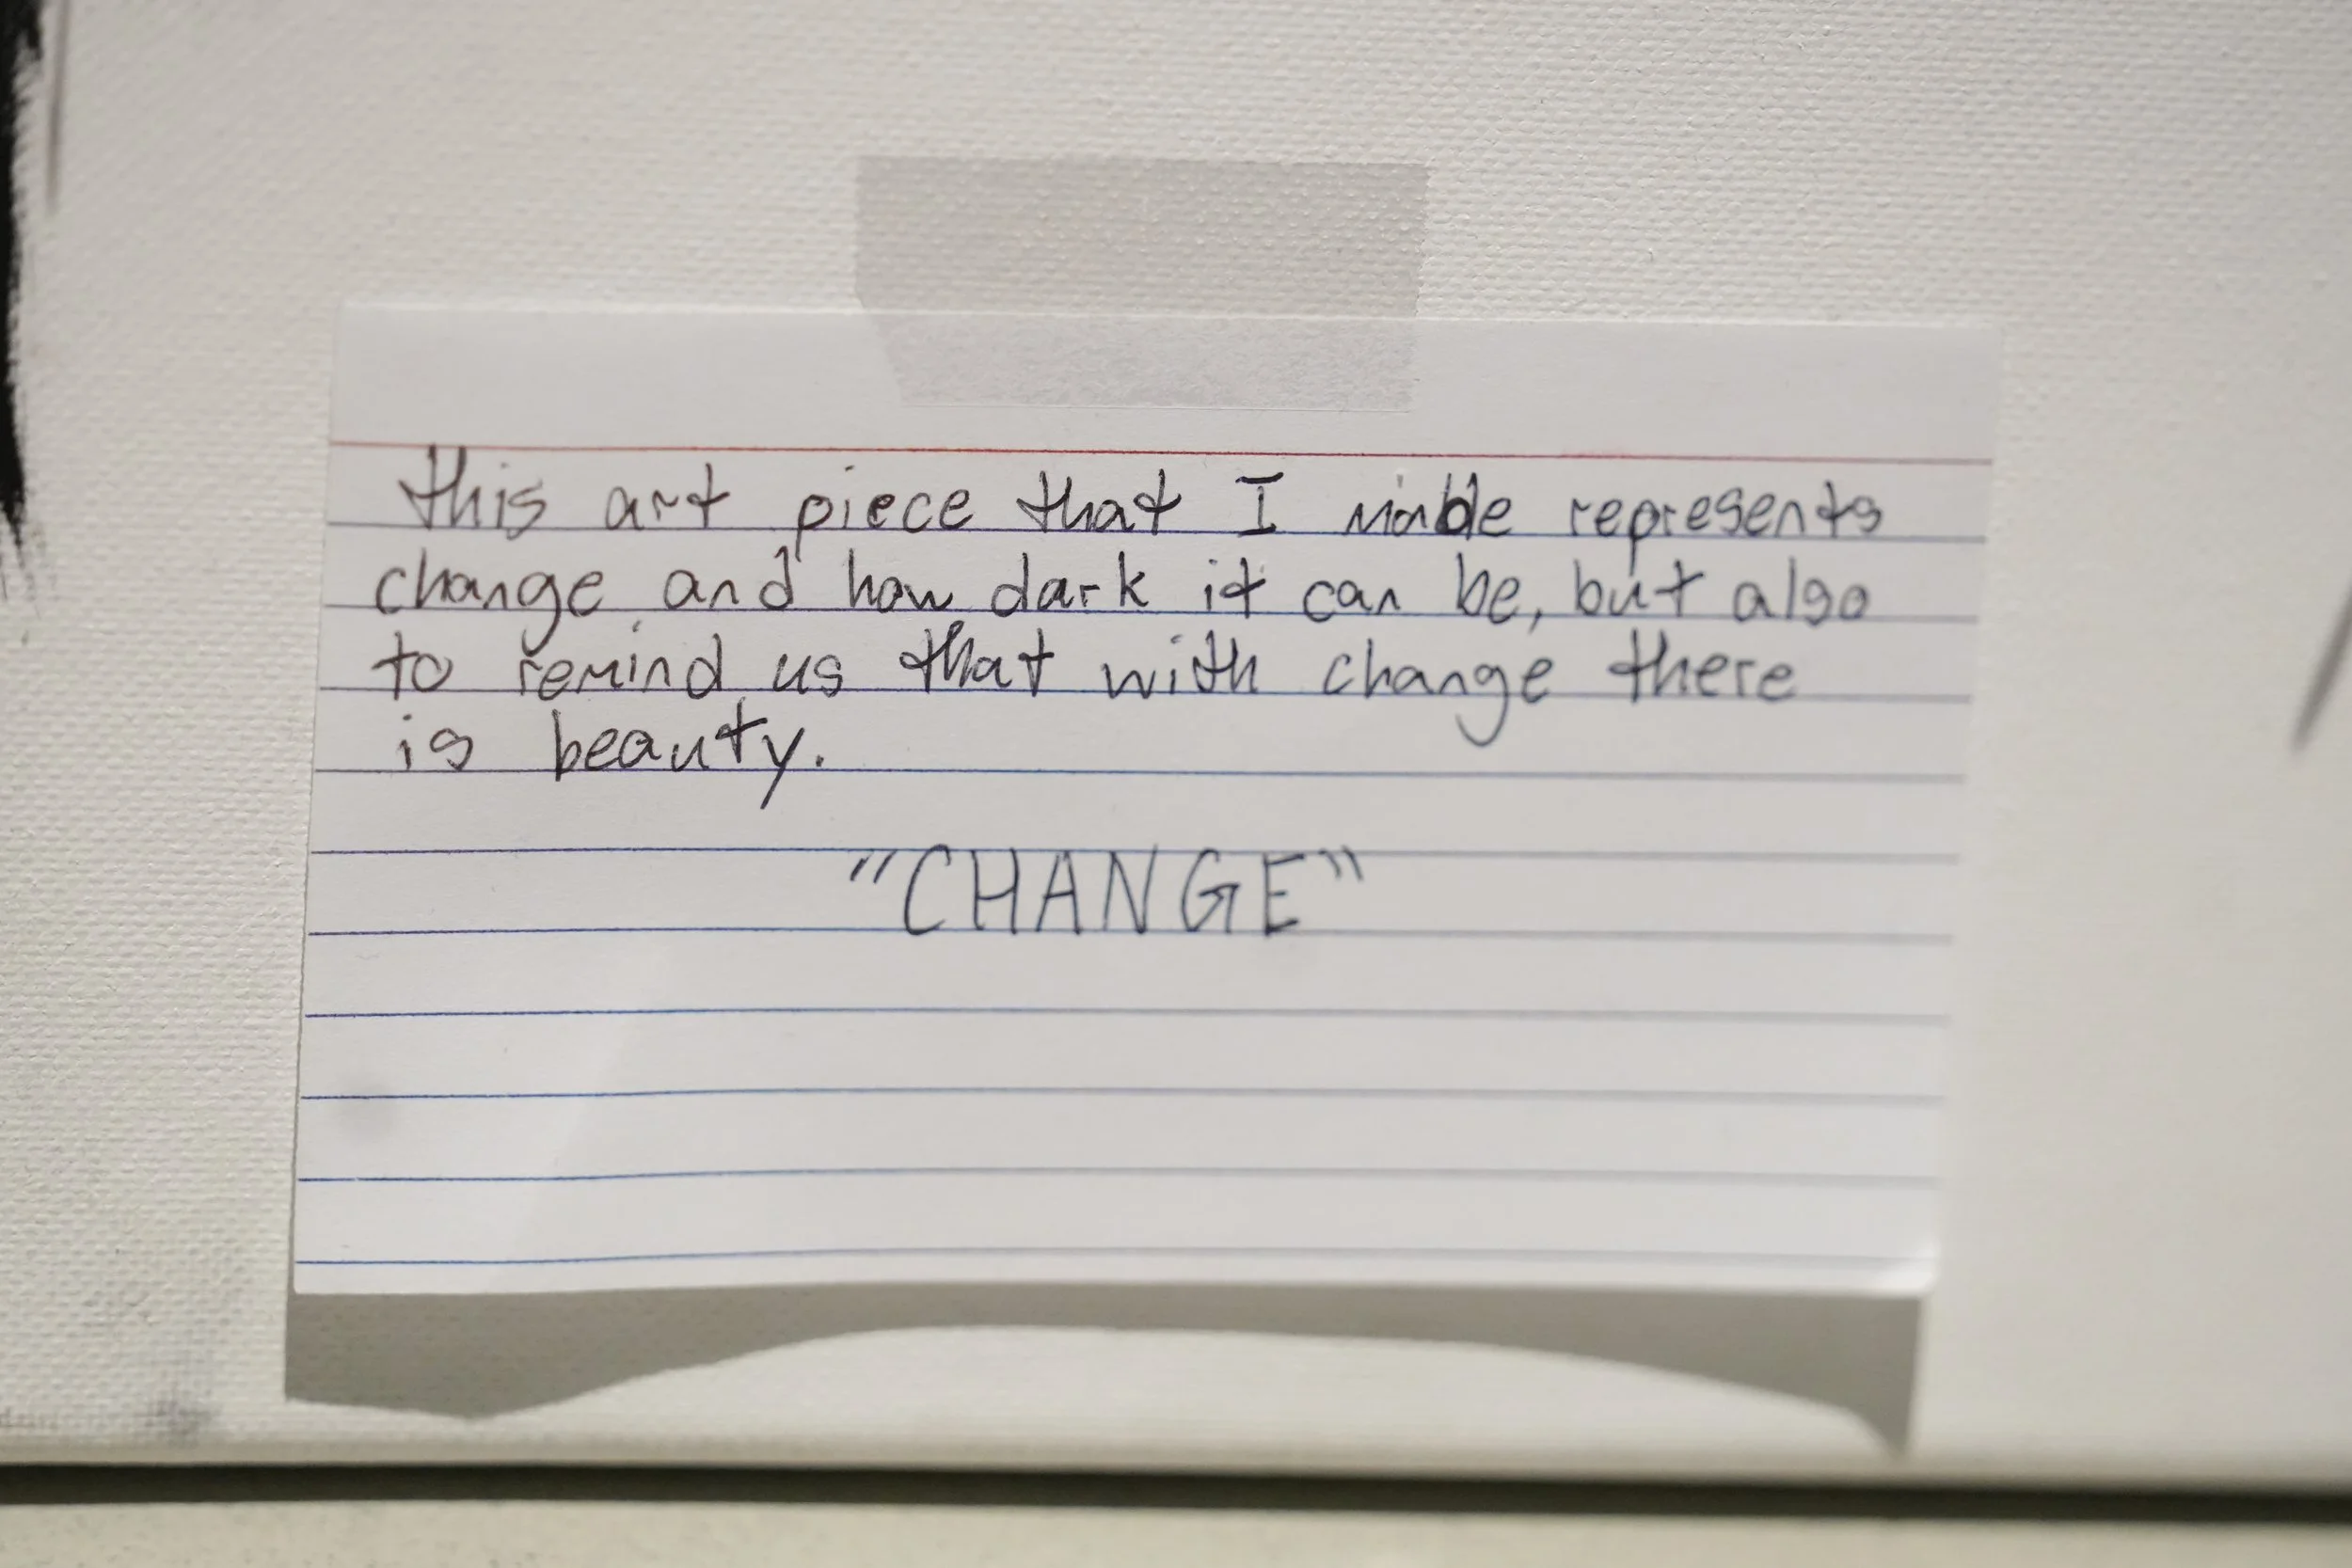 this art piece that I made represents
change and how dark it can be, but also
to remind us that with change there
is beauty.
"CHANGE"